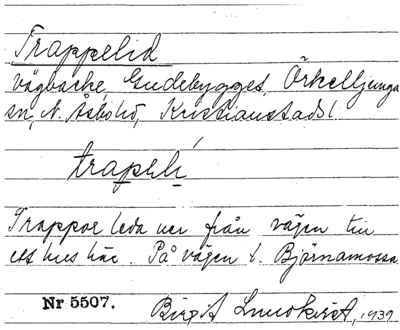 Trappelid
vägbacke, Gudebygget, Örkelljunga
sn, N. Åsbo hd, Kristianstads l.
trapelí
Trappor leda ner från vägen till
ett hus här. På vägen t. Björnamossa.
Nr 5507.
Birgit Lundkvist, 1939